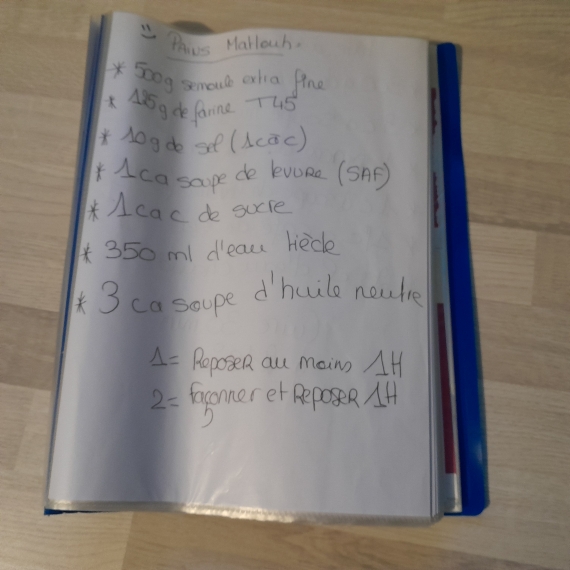 Pains Matlouh.
* 500g semoule extra fine
* 125g de farine T45
* 10g de sel (1càc)
* 1 ca soupe de levure (SAF)
* 1 ca c de sucre
* 350 ml d'eau tiède
* 3 ca soupe d'huile neutre
1= Reposer au moins 1H
2= façonner et Reposer 1H